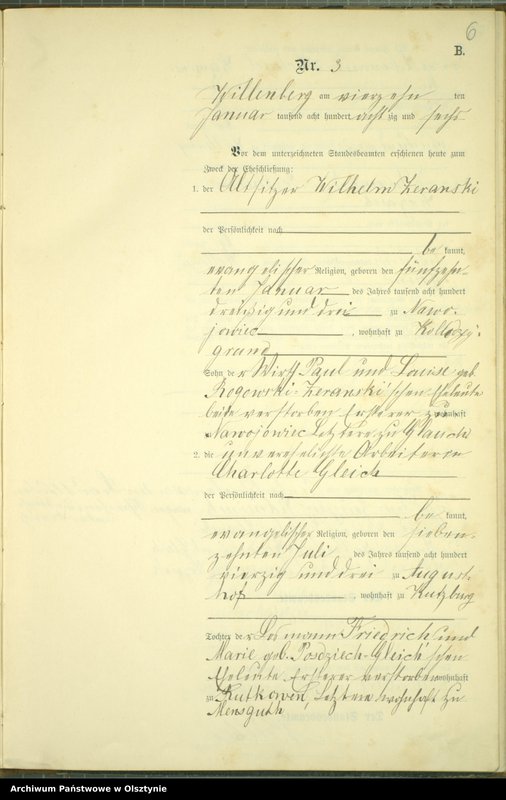 6
B.
Nr. 3
Willenberg am vierzehn ten
Januar tausend acht hundert acht zig und sechs
Vor dem unterzeichneten Standesbeamten erschienen heute zum
Zweck der Eheschließung:
1. der Altsitzer Wilhelm Zeranski
der Persönlichkeit nach
be kannt,
evangelischer Religion, geboren den fünfzehn-
ten Januar des Jahres tausend acht hundert
dreißig und drei zu Nawo-
jowiec, wohnhaft zu Kollodzy-
grund
Sohn der Wirth Paul und Louise geb.
Rogowski-Zeranski'schen Eheleute
beide verstorben Ersterer zu
Nawojowiec Letztere zu Glauch
2. die unverehelichte Arbeiterin
Charlotte Gleich
der Persönlichkeit nach
be kannt,
evangelischer Religion, geboren den sieben-
zehnten Juli des Jahres tausend acht hundert
vierzig und drei zu August-
hof, wohnhaft zu Kutzburg
Tochter der Losmann Friedrich und
Marie geb. Posdziech-Gleich'schen
Eheleute Ersterer verstorben wohnhaft
zu Rutkowen, Letztere wohnhaft zu
Mensguth
Archiwum Państwowe w Olsztynie